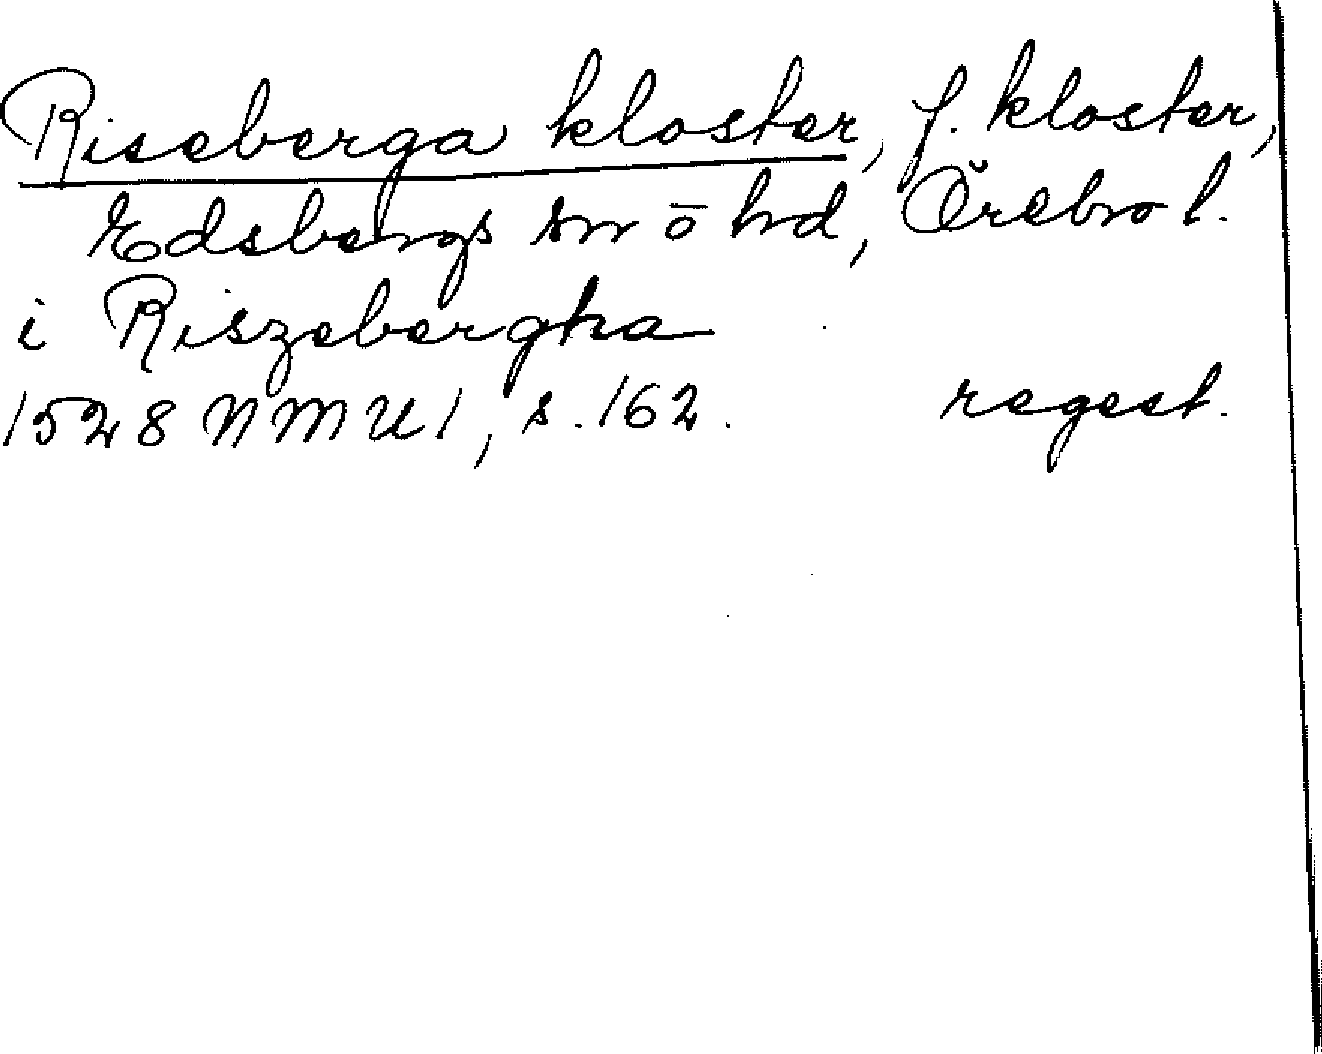 Riseberga kloster, f. kloster,
Edsbergs sn o hd, Örebro l.
i Riszebergha
1528 NMU 1, s. 162. regest.